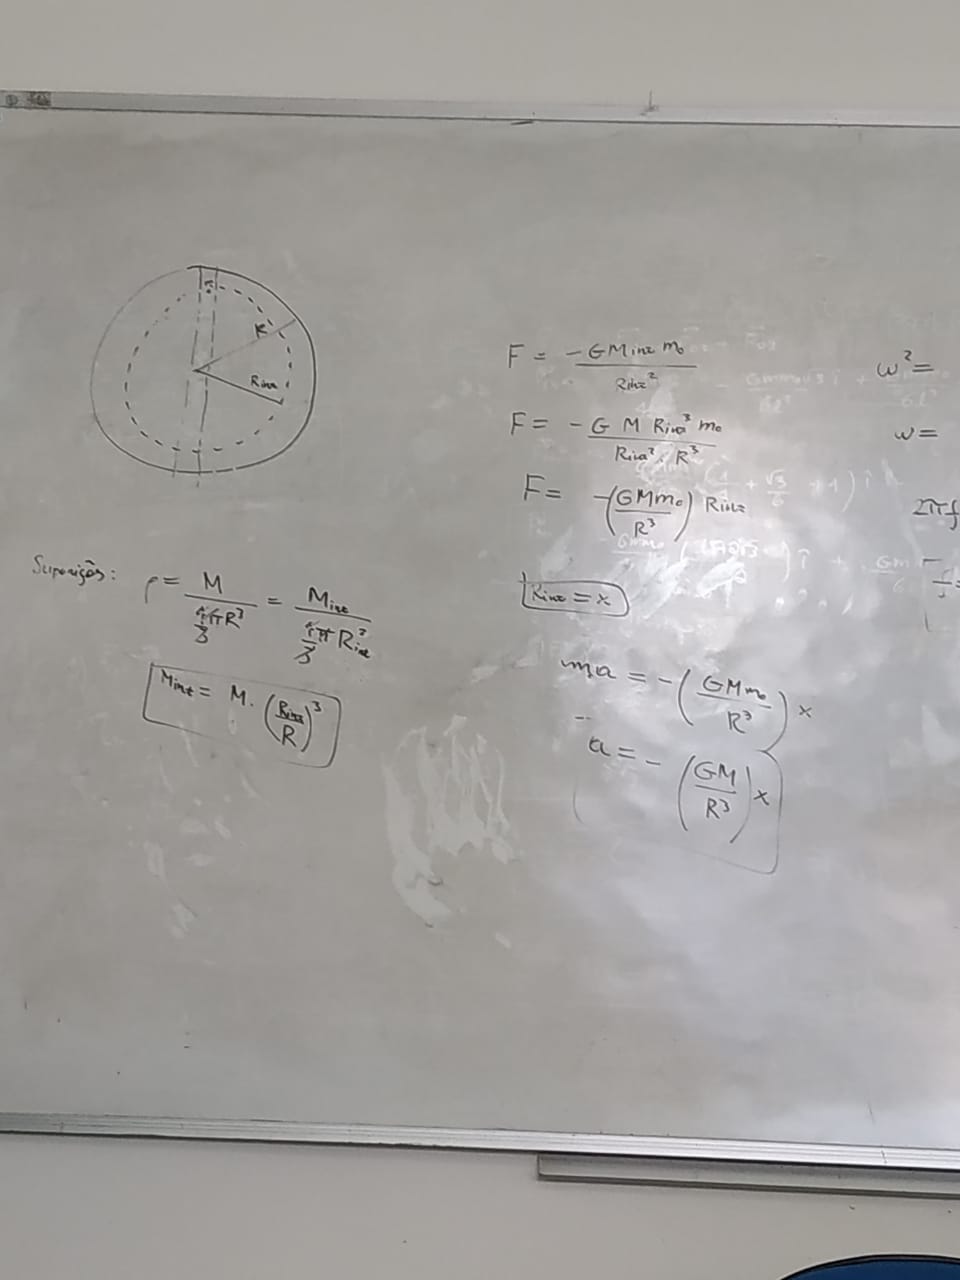 R
Rint
Suposições:
ρ = M / (4/3 πR³) = Mint / (4/3 π Rint³)
Mint = M. (Rint/R)³
F = -GMint m₀ / Rint²
F = - G M Rint³ m₀ / Rint². R³
F = -(GMm₀/R³) Rint
Rint = x
ma = -(GMm₀/R³) x
a = -(GM/R³) x
ω² =
ω =
2πf
f =